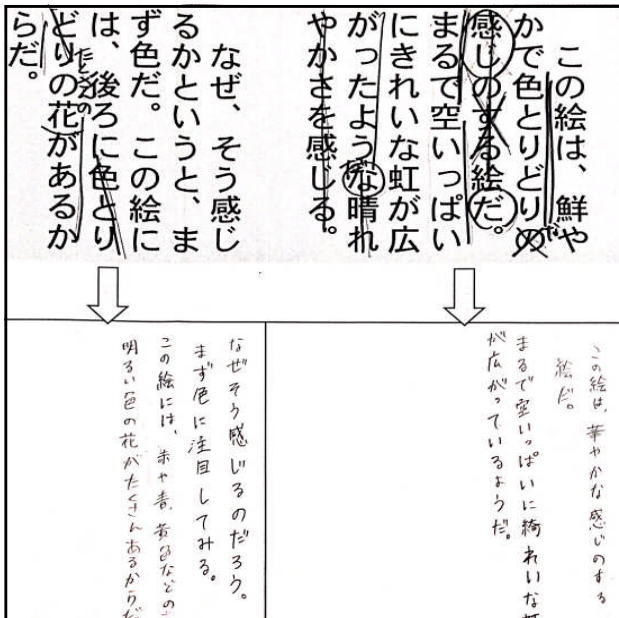 この絵は、鮮や
かで色とりどりの
感じのする絵だ。
まるで空いっぱい
にきれいな虹が広
がったような晴れ
やかさを感じる。
なぜ、そう感じ
るかというと、ま
ず色だ。この絵に
は、後ろに色とり
どりの花があるか
らだ。
たくさんの
この絵は、華やかな感じのする
絵だ。
まるで空いっぱいに綺れいな
が広がっているようだ。
なぜそう感じるのだろう。
まず色に注目してみる。
この絵には、赤や青、黄色などの
明るい色の花がたくさんあるからだ